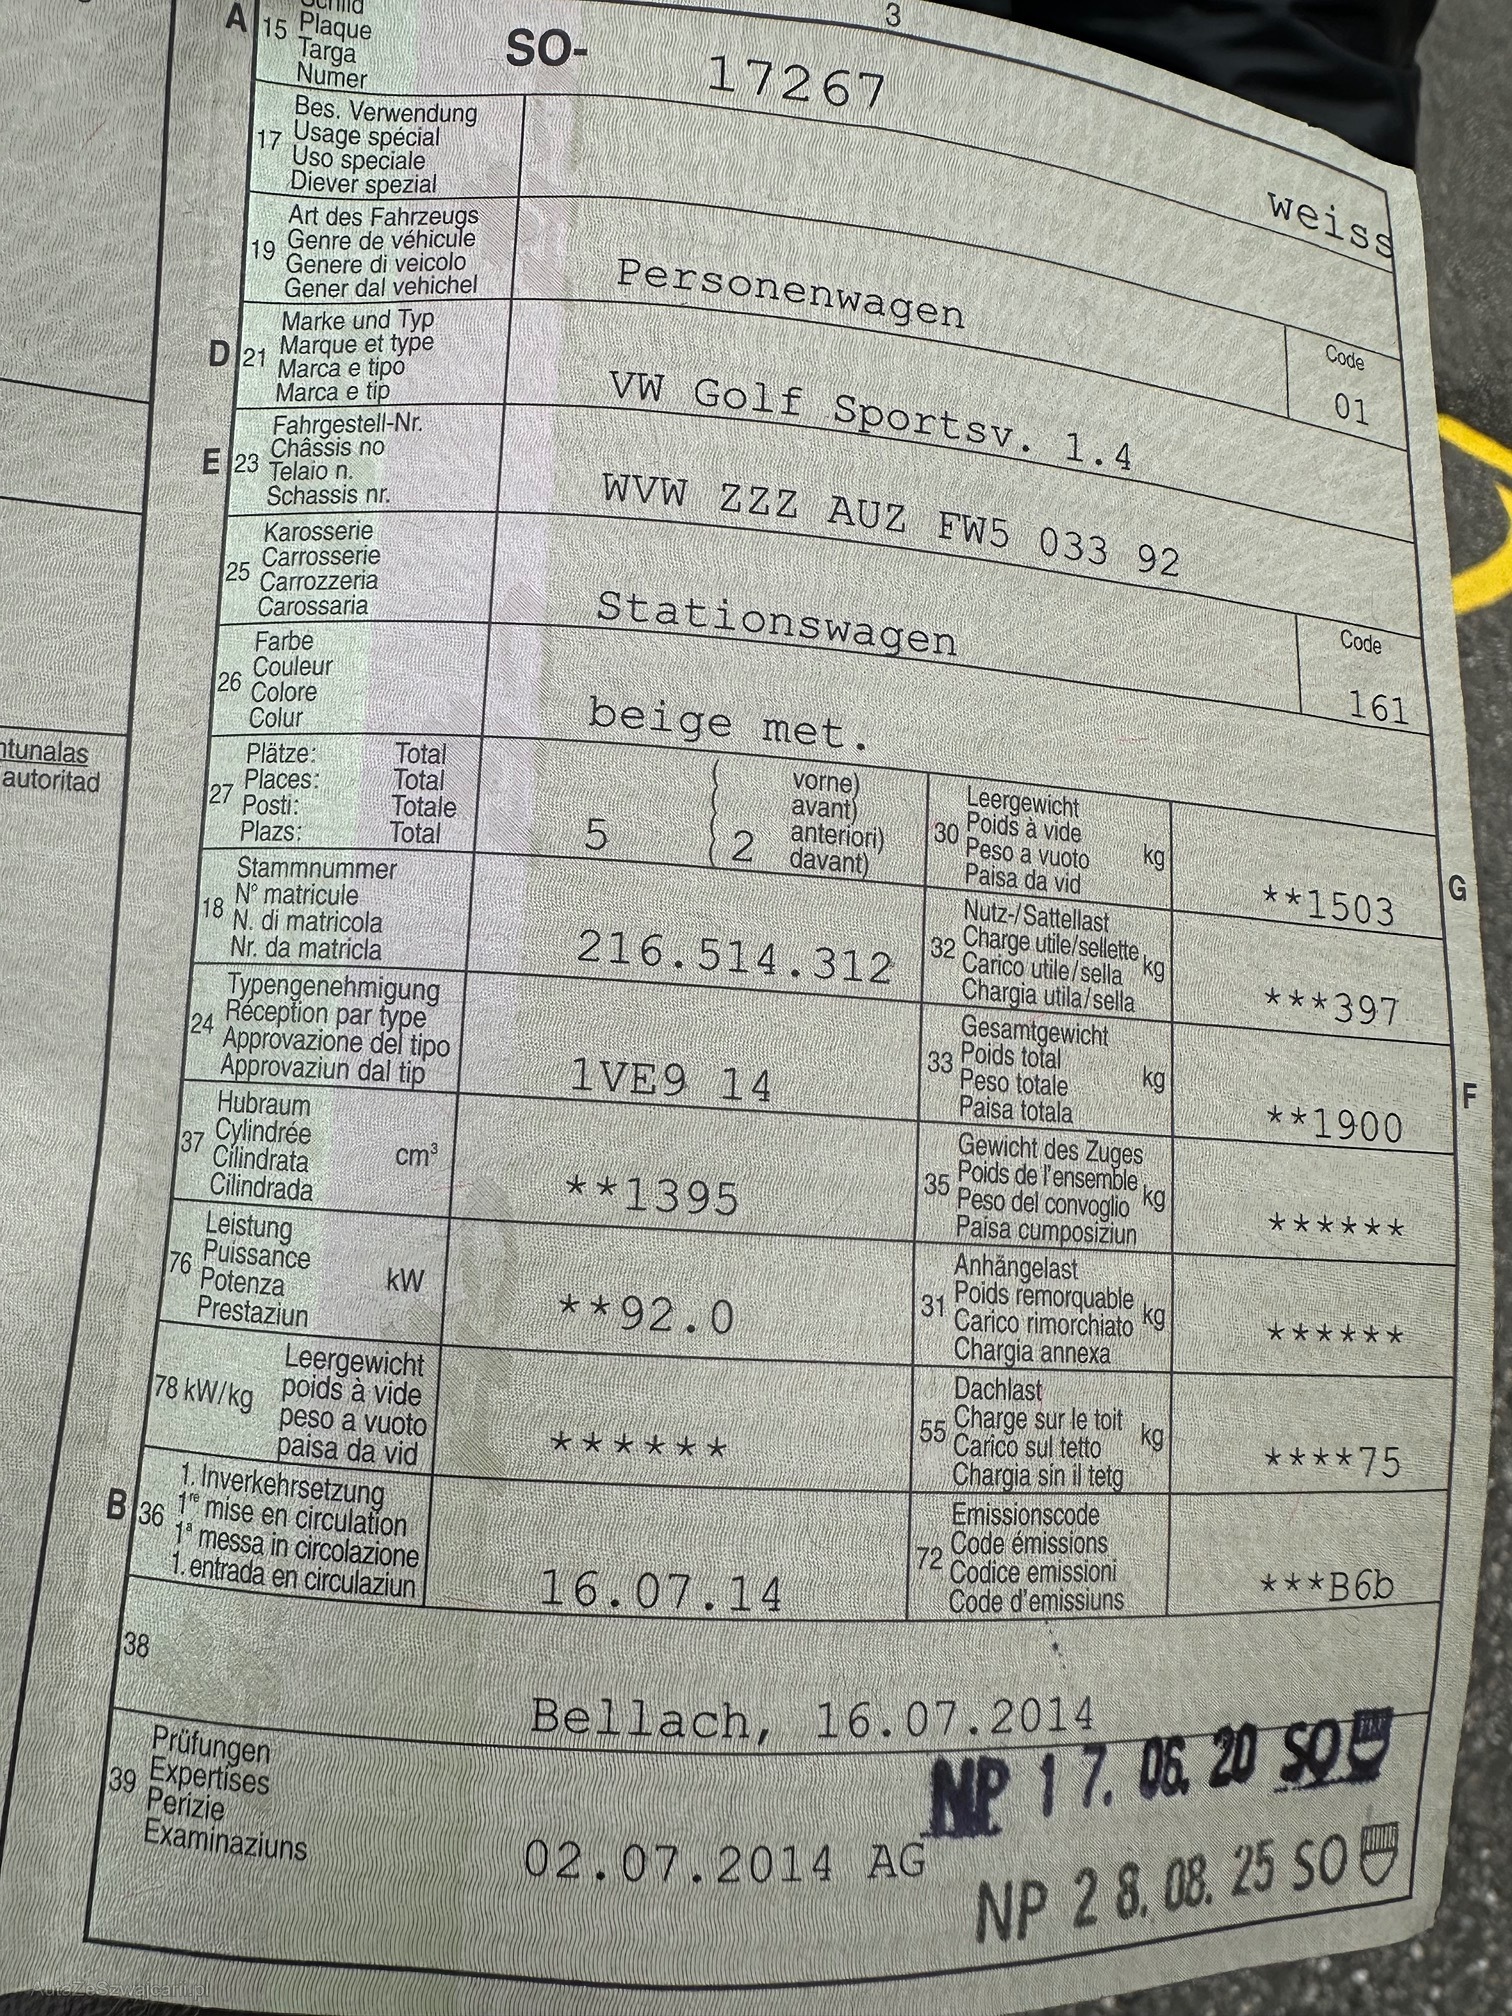 3
A 15 Schild
Plaque
Targa
Numer
SO- 17267
weiss
17 Bes. Verwendung
Usage spécial
Uso speciale
Diever spezial
19 Art des Fahrzeugs
Genre de véhicule
Genere di veicolo
Gener dal vehichel
Personenwagen
Code
01
D 21 Marke und Typ
Marque et type
Marca e tipo
Marca e tip
VW Golf Sportsv. 1.4
E 23 Fahrgestell-Nr.
Châssis no
Telaio n.
Schassis nr.
WVW ZZZ AUZ FW5 033 92
25 Karosserie
Carrosserie
Carrozzeria
Carossaria
Stationswagen
Code
161
26 Farbe
Couleur
Colore
Colur
beige met.
ntunalas
autoritad
27 Plätze: Total
Places: Total
Posti: Totale
Plazs: Total
5
2
vorne)
avant)
anteriori)
davant)
30 Leergewicht
Poids à vide
Peso a vuoto
Paisa da vid
kg
**1503
G
18 Stammnummer
N° matricule
N. di matricola
Nr. da matricla
216.514.312
32 Nutz-/Sattellast
Charge utile/sellette
Carico utile/sella
Chargia utila/sella
kg
***397
24 Typengenehmigung
Réception par type
Approvazione del tipo
Approvaziun dal tip
1VE9 14
33 Gesamtgewicht
Poids total
Peso totale
Paisa totala
kg
**1900
F
37 Hubraum
Cylindrée
Cilindrata
Cilindrada
cm³
**1395
35 Gewicht des Zuges
Poids de l'ensemble
Peso del convoglio
Paisa cumposiziun
kg
******
76 Leistung
Puissance
Potenza
Prestaziun
kW
**92.0
31 Anhängelast
Poids remorquable
Carico rimorchiato
Chargia annexa
kg
******
78 kW/kg Leergewicht
poids à vide
peso a vuoto
paisa da vid
******
55 Dachlast
Charge sur le toit
Carico sul tetto
Chargia sin il tetg
kg
****75
B 36 1. Inverkehrsetzung
1re mise en circulation
1a messa in circolazione
1. entrada en circulaziun
16.07.14
72 Emissionscode
Code émissions
Codice emissioni
Code d'emissiuns
***B6b
38
Bellach, 16.07.2014
39 Prüfungen
Expertises
Perizie
Examinaziuns
NP 17. 06. 20 SO
02.07.2014 AG
NP 28. 08. 25 SO
AutaZeSzwajcarii.pl